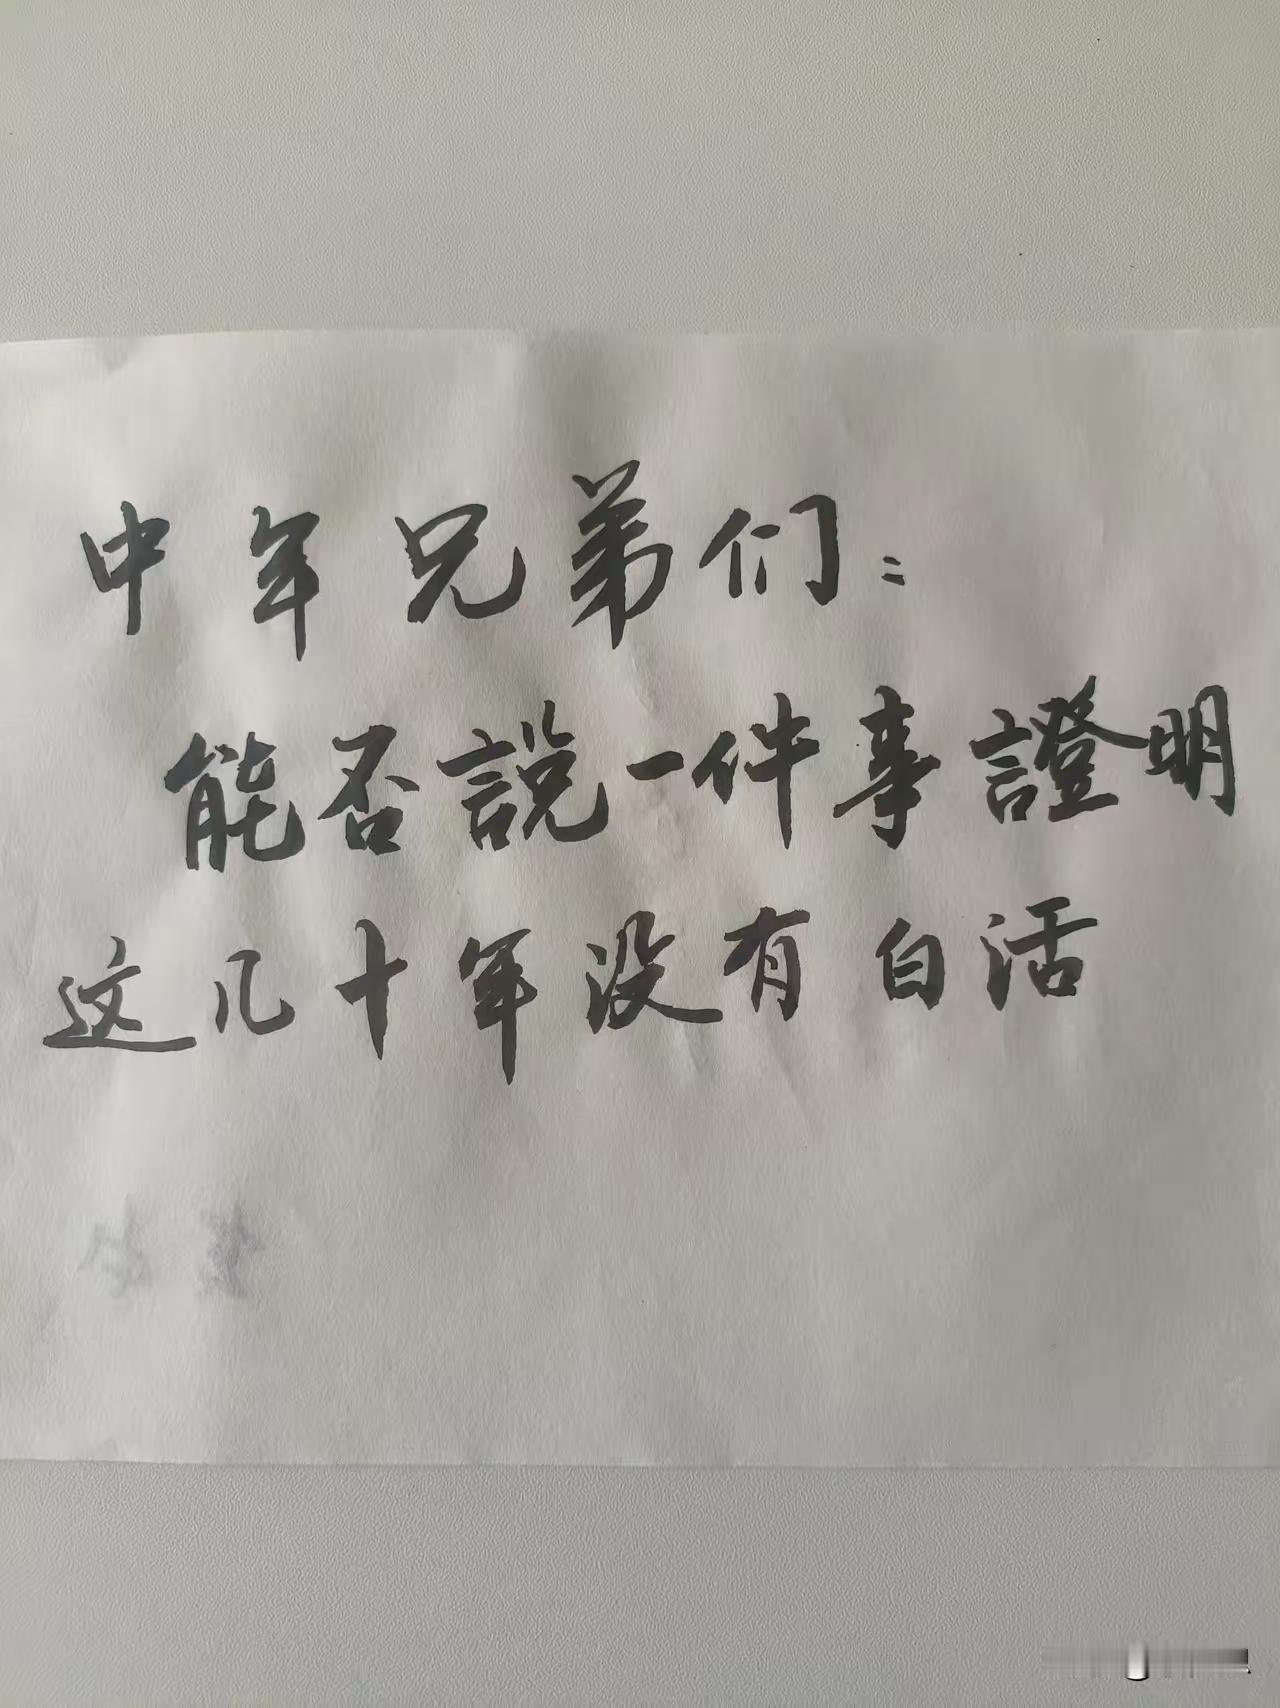 中年兄弟们：
能否說一件事證明
这几十年没有白活